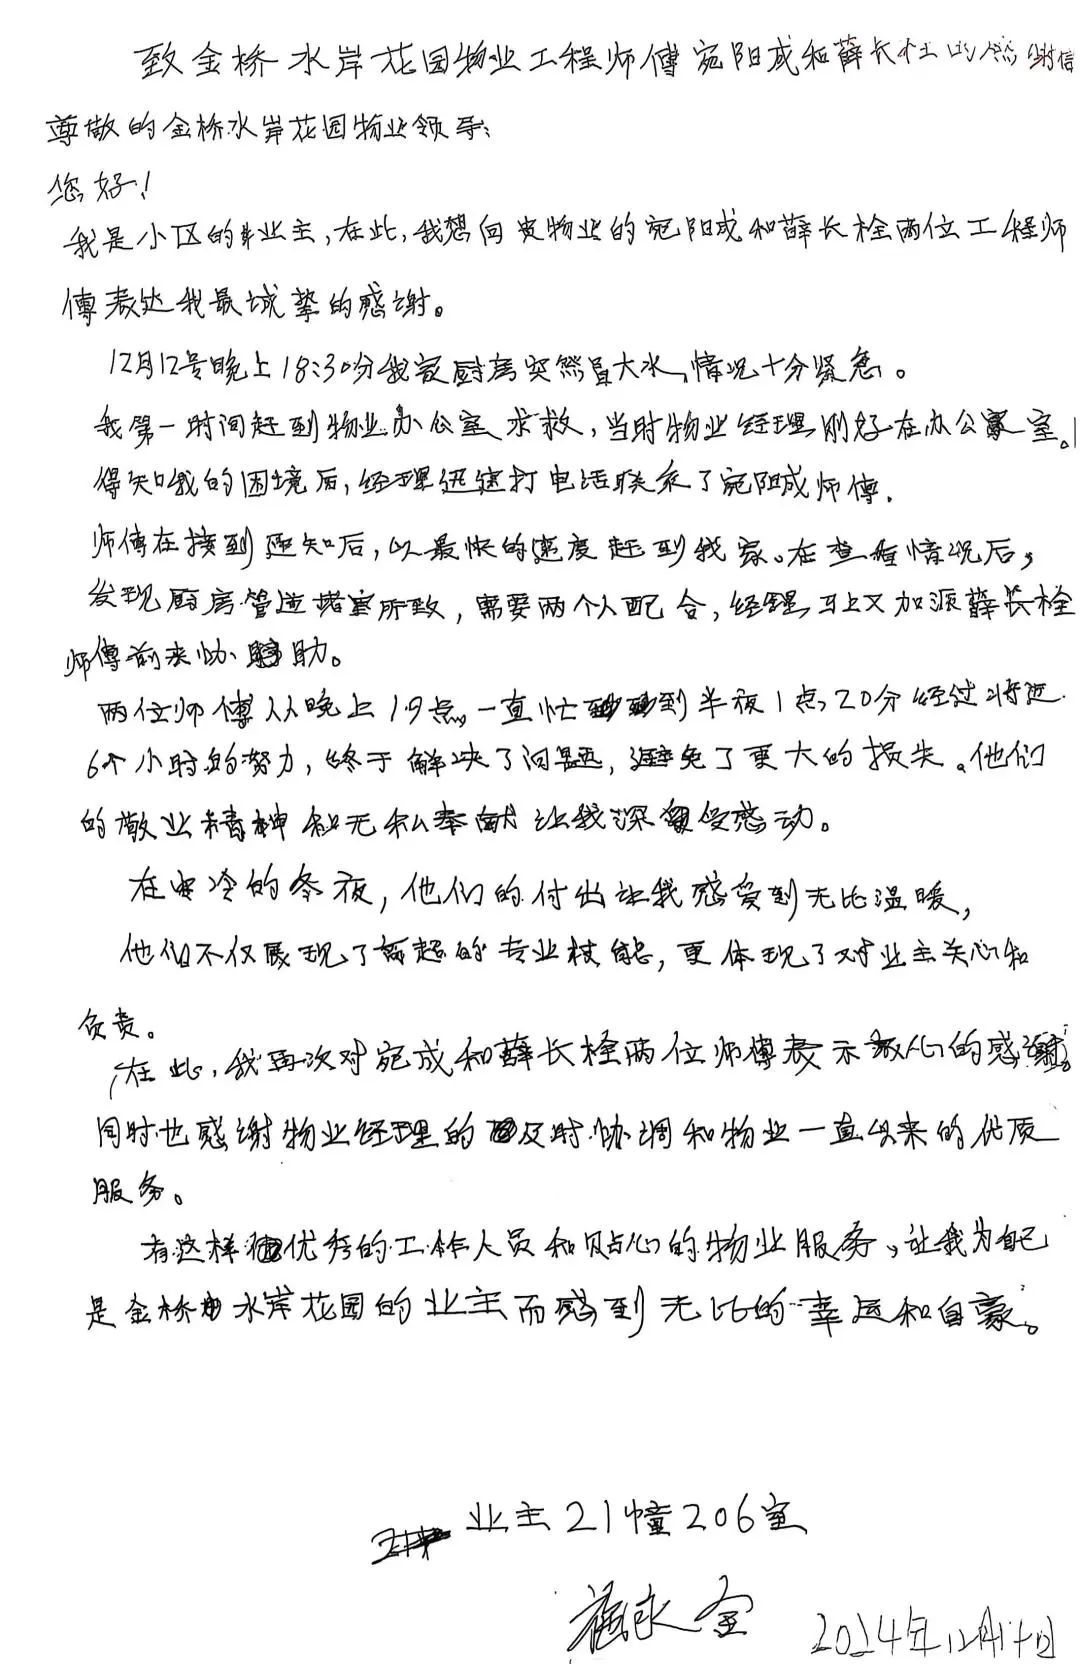 致金桥水岸花园物业工程师傅宛阳成和薛长栓的感谢信
尊敬的金桥水岸花园物业领导:
您好!
我是小区的业主,在此,我想向贵物业的宛阳成和薛长栓两位工程师
傅表达我最诚挚的感谢。
12月12号晚上18:30分我家厨房突然冒大水,情况十分紧急。
我第一时间赶到物业办公室求救,当时物业经理刚好在办公室。
得知我的困境后,经理迅速打电话联系了宛阳成师傅.
师傅在接到通知后,以最快的速度赶到我家。在查看情况后,
发现厨房管道堵塞所致,需要两个人配合,经理马上又加派薛长栓
师傅前来协助。
两位师傅从晚上19点,一直忙到半夜1点20分经过将近
6个小时的努力,终于解决了问题,避免了更大的损失。他们
的敬业精神和无私奉献让我深受感动。
在寒冷的冬夜,他们的付出让我感受到无比温暖,
他们不仅展现了高超的专业技能,更体现了对业主关心和
负责。
在此,我再次对宛成和薛长栓两位师傅表示衷心的感谢。
同时也感谢物业经理的及时协调和物业一直以来的优质
服务。
有这样优秀的工作人员和贴心的物业服务,让我为自己
是金桥水岸花园的业主而感到无比的幸运和自豪。
业主21幢206室
永金 2024年12月17日